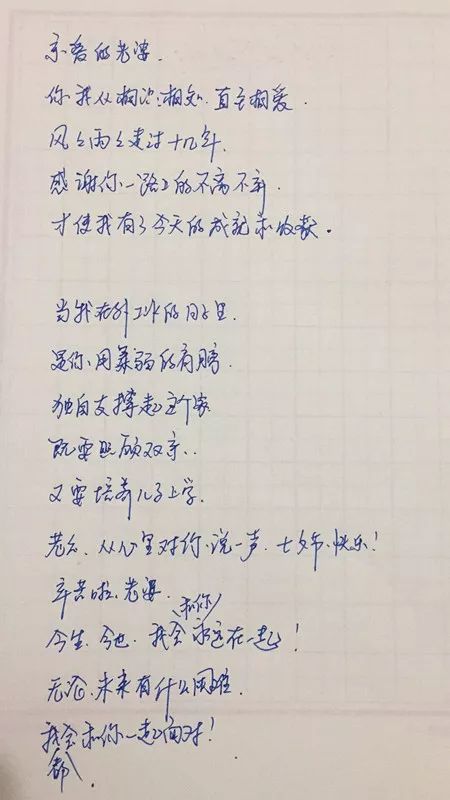 亲爱的老婆.
你我从相识相知.直至相爱.
风风雨雨走过十几年.
感谢你一路上的不离不弃.
才使我有了今天的成就和收获。
当我在外工作的日子里.
是你用柔弱的肩膀.
独自支撑起这个家
既要照顾双亲..
又要培养儿子上学.
老公.从心里对你说一声.七夕节快乐!
辛苦啦.老婆.
今生.今世.我会和你永远在一起!
无论.未来有什么困难.
我都会和你一起面对!